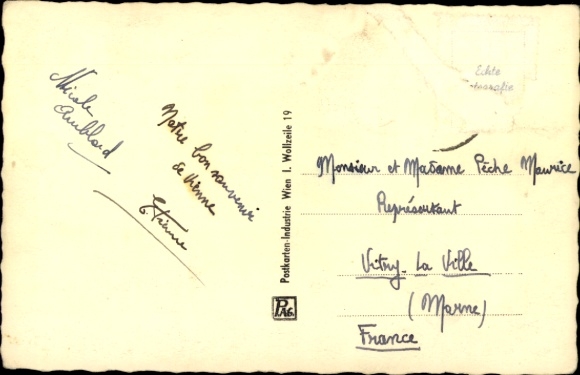 Nicole
Amblard
Notre bon souvenir
de Vienne
Etienne
Postkarten-Industrie Wien I. Wollzeile 19
PAG
Echte
Monsieur et Madame Pêche Maurice
Représentant
Vitry-La Ville
(Marne)
France